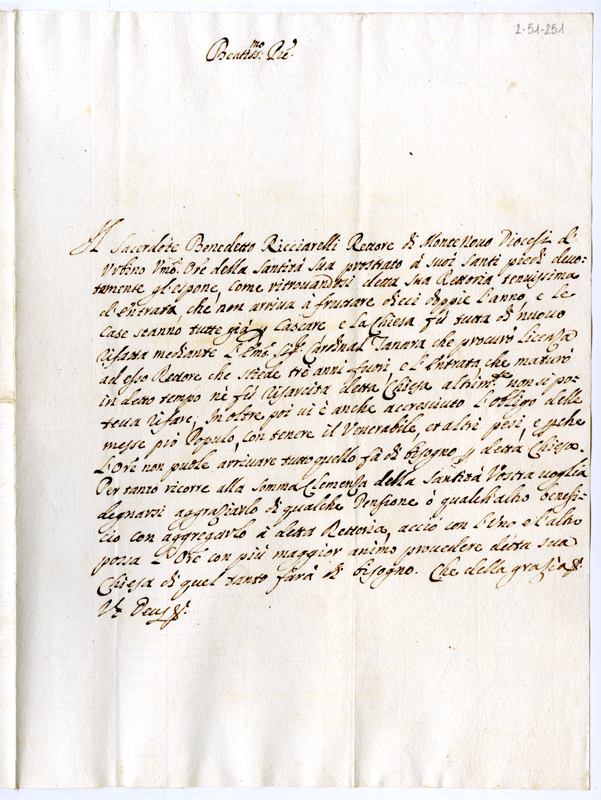 2-51-251
Beatiss.mo Pre.
Il Sacerdote Benedetto Ricciarelli Rettore di Monte Novo Diocesi d'
Urbino Um.o Ore della Santità Sua prostrato à suoi Santi piedi devo-
tamente gl'espone, come ritrovandosi detta Sua Rettoria tenuissima
d'entrata, che non arriva à fruttare dieci dopie l'anno, e le
Case stanno tutte già p cascare e la Chiesa fù tutta di nuovo
rifatta mediante l'Em.o Sig.r Cardinal Tanara che procurò licenza
ad esso Rettore che stiede trè anni fuori, e l'entrata che maturò
in detto tempo ne fù risarcita detta Chiesa altrim.te non si po-
teva rifare, Inoltre poi vi è anche accresciuto l'obligo della
messe piò Populo, con tenere il Venerabile, et altri pesi, e p che
l'Ore non puole arrivare tutto quello fà di bisogno p detta Chiesa.
Per tanto ricorre alla somma Clemenza della Santità Vostra voglia
degnarsi aggraziarlo di qualche Pensione ò qualch'altro benefi-
cio con aggregarlo à detta Rettoria, acciò con l'uno e l'altro
possa l'Ore con più maggior animo provedere detta sua
Chiesa di quel tanto farà di bisogno. Che della grazia &.
Ut Deus &.